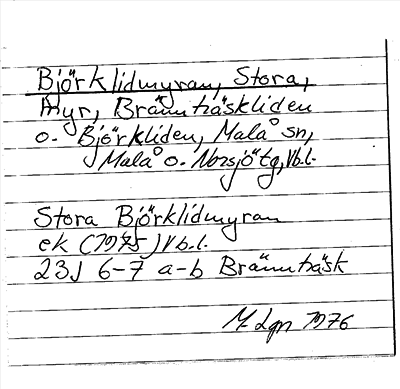 Björklidmyran, Stora,
myr, Brännträskliden
o. Björkliden, Malå sn,
Malå o. Norsjö tg, Vb.l.
Stora Björklidmyran
ek (1975) Vb.l.
23J 6-7 a-b Brännträsk
M. Lgn 1976